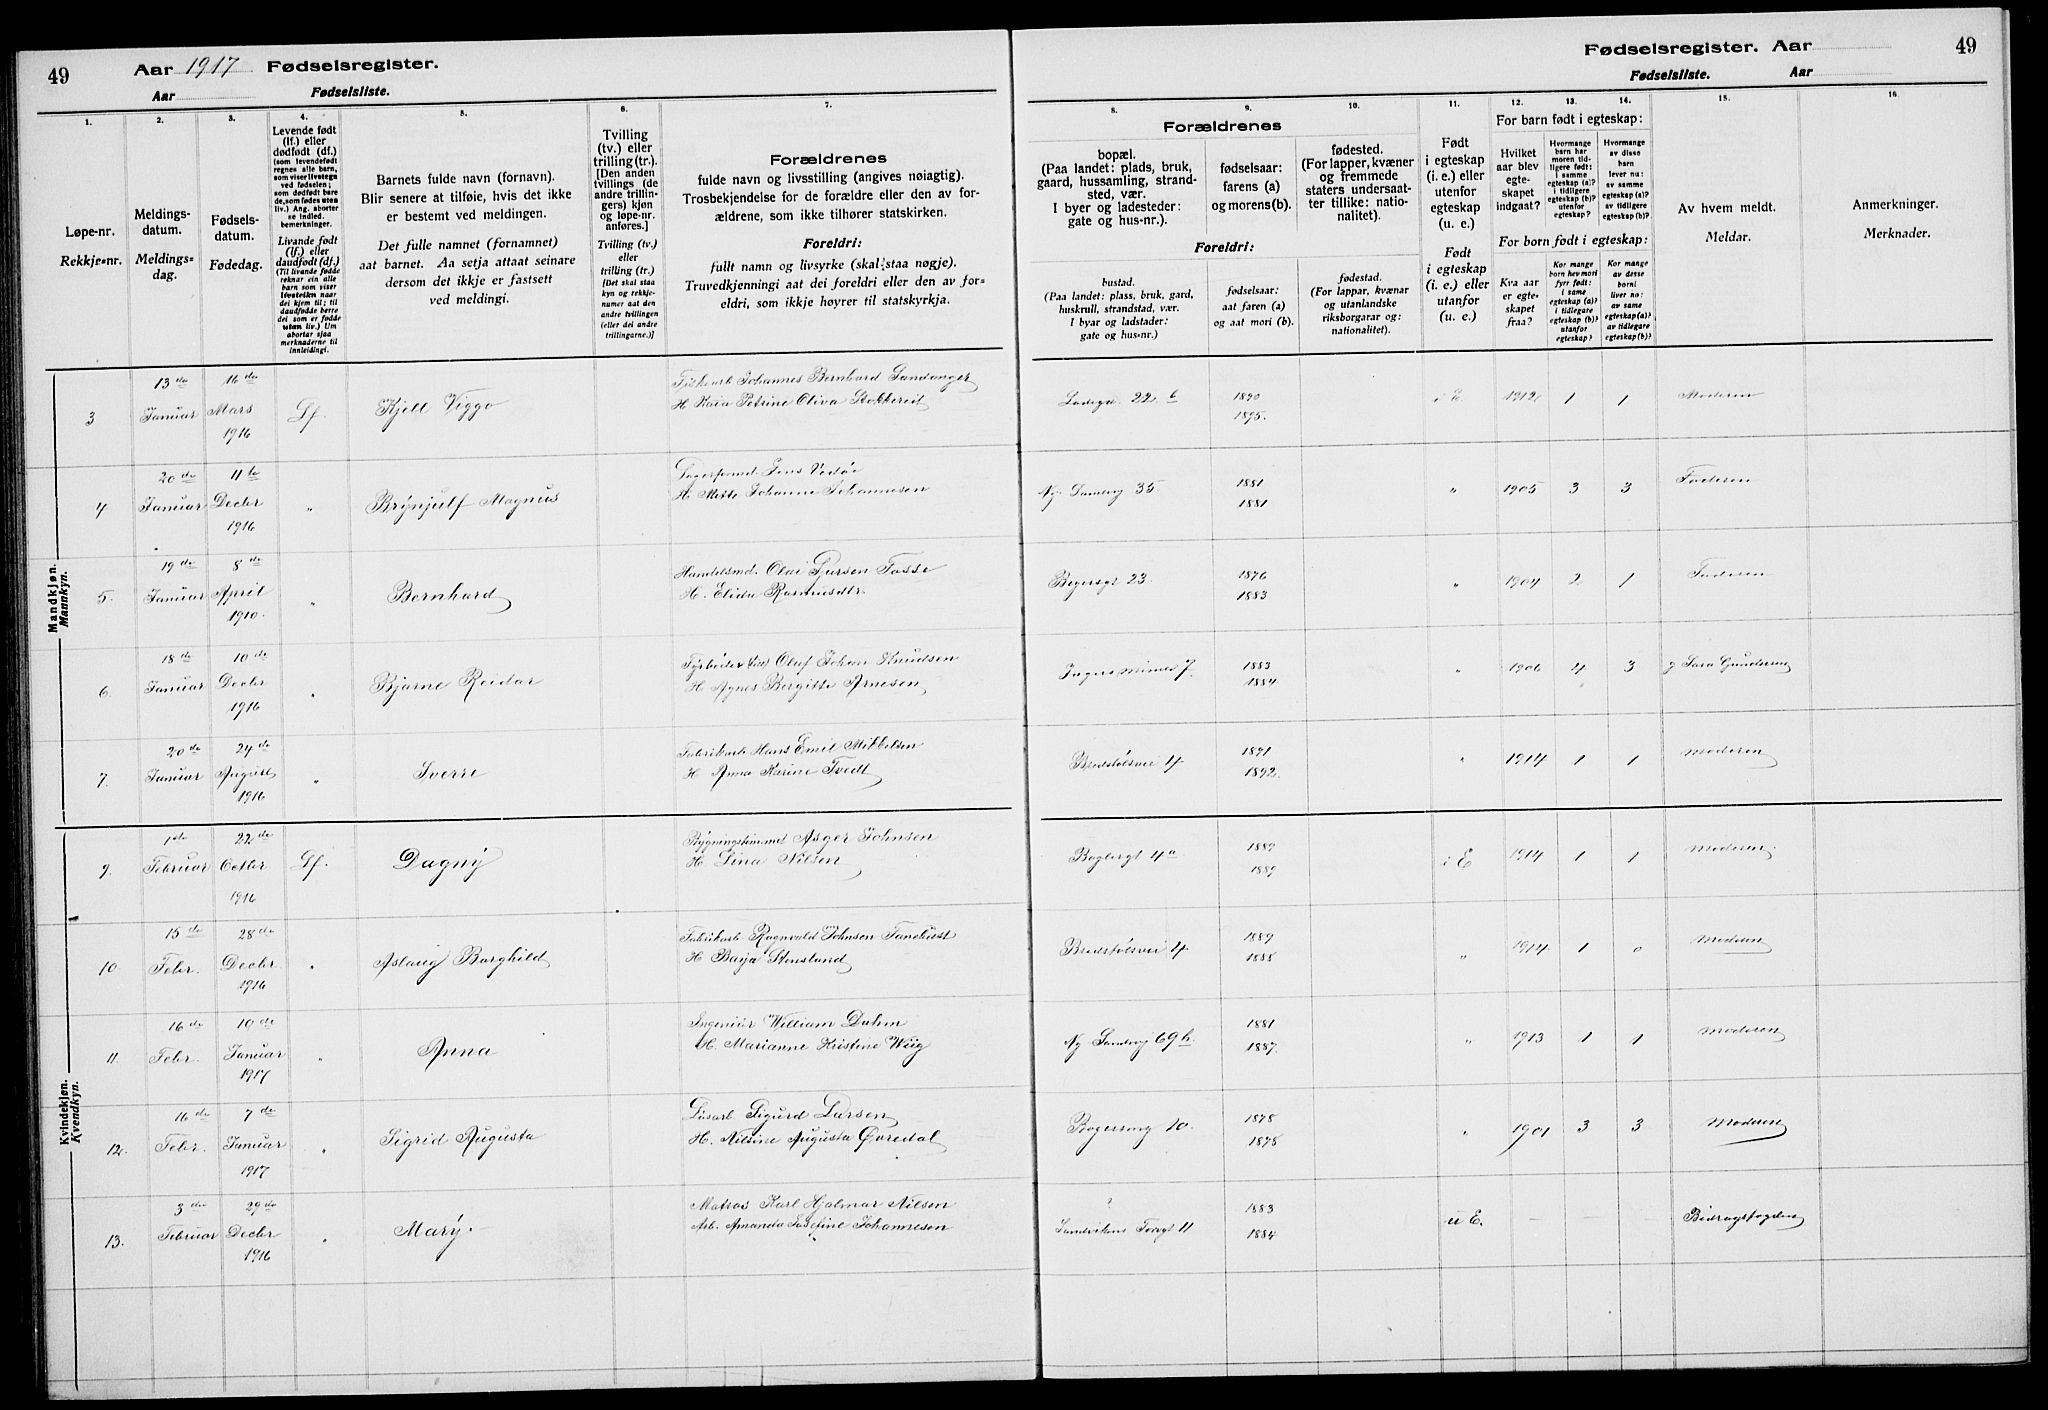 49
Aar 1917 Fødselsregister.
Aar
Fødselsliste.
1.
2.
3.
4.
5.
6.
7.
Løpe-nr.
Rekkje-nr.
Meldings-
datum.
Meldings-
dag.
Fødsels-
datum.
Fødedag.
Levende født
(lf.) eller
dødfødt (df.)
(som levendefødt
regnes alle barn,
som viser livstegn
ved fødselen;
som dødfødt bare
de, som fødes uten
liv.) Ang. aborter
se indled.
bemerkninger.
Livande født
(lf.) eller
daudfødt (df.)
(Til livande fødde
reknar ein alle
barn som viser
livsteikn naar
dei kjem til; til
daudfødde berre
dei som er fødde
utan liv.) Um
abortar sjaa
merknaderne til
innleidingi.
Barnets fulde navn (fornavn).
Blir senere at tilføie, hvis det ikke
er bestemt ved meldingen.
Det fulle namnet (fornamnet)
aat barnet. Aa setja attaat seinare
dersom det ikkje er fastsett
ved meldingi.
Tvilling
(tv.) eller
trilling (tr.).
[Den anden
tvillings (de
andre trillin-
gers) kjøn
og løpe-nr.
anføres.]
Tvilling (tv.)
eller
trilling (tr.)
[Det skal staa
kyn og rekkje-
numer aat den
andre tvillingen
(eller dei andre
trillingarne.)]
Forældrenes
fulde navn og livsstilling (angives nøiagtig).
Trosbekjendelse for de forældre eller den av for-
ældrene, som ikke tilhører statskirken.
Foreldri:
fullt namn og livsyrke (skal staa nøgje).
Truvedkjenningi aat dei foreldri eller den av for-
eldri, som ikkje høyrer til statskyrkja.
Mandkjøn.
Mannkyn.
3
13de
Januar
16de
Mars
1916
Lf.
Kjell Viggo
Johannes Bernhard Sandanger
H Kaia Petrine Oliva Stokkereit
4
20de
Januar
11te
Decbr
1916
"
Brynjulf Magnus
Lagerformd. Jens Vedøe
H. Mette Johanne Johannesen
5.
19de
Januar
8de
April
1910.
"
Bernhard
Handelsmd. Olai Fosse
H. Elida Rasmusdtr.
6.
18de
Januar
10de
Decbr
1916
"
Bjarne Reidar
Fyrbøder Olaf Johan Knudsen
H Agnes Bergitte Arnesen
7.
20de
Januar
24de
August
1916
"
Sverre
Fabrikarb Hans Emil Mikkelsen
H Anna Karine Tvedt
Kvindekjøn.
Kvendkyn.
9.
1ste
Februar
22de
Octbr
1916
Lf.
Dagny
Asger Johnsen
H. Lina Nilsen
10.
15de
Febr.
28de
Decbr
1916
"
Aslaug Borghild
Fabrikarb. Ragnvald Johnsen
H Stensland
11.
16de
Febr.
10de
Januar
1917
"
Anna
Ingeniør William Dahm
H. Marianne Kristine Wiig
12.
16de
Febr.
7de
Januar
1917
"
Sigrid Augusta
Løsarb. Sigurd Larsen
H. Nilsine Augusta Øvredal
13.
3die
Februar
29de
Decbr
1916
"
Mary
Matros Karl Hjalmar Nilsen
Arb. Amanda Josefine Johannesen
Fødselsregister. Aar
49
Fødselsliste.
Aar
8.
9.
10.
11.
12.
13.
14.
15.
16.
Forældrenes
bopæl.
(Paa landet: plads, bruk,
gaard, hussamling, strand-
sted, vær.
I byer og ladesteder:
gate og hus-nr.).
fødselsaar:
farens (a)
og morens(b).
fødested.
(For lapper, kvæner
og fremmede
staters undersaat-
ter tillike: natio-
nalitet).
Foreldri:
bustad.
(Paa landet: plass, bruk, gard,
huskrull, strandstad, vær.
I byar og ladstader:
gate og hus-nr.)
fødselsaar:
aat faren (a)
og aat mori (b).
fødestad.
(For lappar, kvænar
og utanlandske
riksborgarar og:
nationalitet).
Født
i egteskap
(i. e.) eller
utenfor
egteskap
(u. e.)
Født
i egteskap
(i. e.) eller
utanfor
egteskap
(u. e.).
For barn født i egteskap:
Hvilket
aar blev
egte-
skapet
indgaat?
Hvormange
barn har
moren tid-
ligere født:
i samme
egteskap (a)?
i tidligere
egteskap (b)?
utenfor
egteskap?
Hvormange
av disse
barn
lever nu:
av samme
egteskap (a)?
av tidligere
egteskap (b)?
For born født i egteskap:
Kva aar
er egte-
skapet
fraa?
Kor mange
born hev mori
fyrr født:
i same
egteskap (a)?
i tidlegare
egteskap (b)?
utanfor
egteskap?
Kor mange
av desse
borni
liver no:
av same
egteskap (a)?
av tidlegare
egteskap (b)?
Av hvem meldt.
Meldar.
Anmerkninger.
Merknader.
Ladegd. 22 b
1890
1895.
i E.
1912
1
1
Moderen
Ny Sandvig 35
1881
1881
"
1905
3
3
Faderen
23.
1876
1883
"
1904
2
1
Faderen
7
1883
1884
"
1906
4
3
Sara Gundersen
Bredstølsvei 4
1891
1892.
"
1914
1
1
Moderen
4a
1889
1889
i E
1914
1
1
Moderen.
Bredstølsvei 4
1889
1888
"
1914
1
0
Moderen
Ny Sandvig 69 b.
1881
1887.
"
1913
1
1
Moderen
10.
1878
1878
"
1901
3
3
Moderen
?
Sandvikens Torvgt 11
1883
1884
u E.
—
—
—
Bidragsfogden